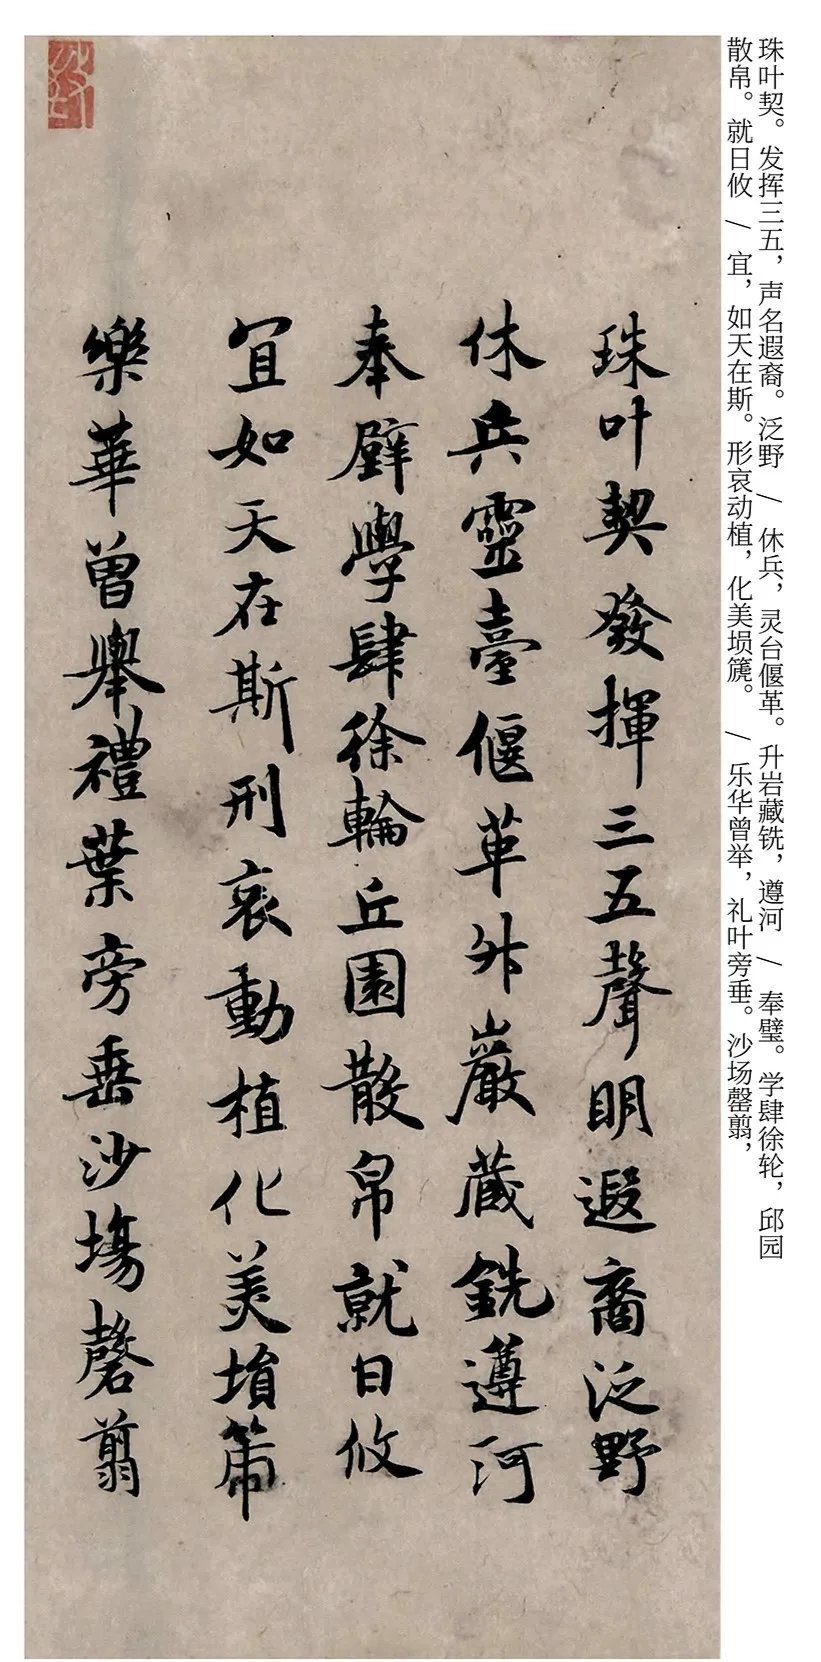 珠叶契。发挥三五，声名遐裔。泛野 / 休兵，灵台偃革。升岩藏铣，遵河 / 奉璧。学肆徐轮，邱园
散帛。就日攸 / 宜，如天在斯。形哀动植，化美埙篪。 / 乐华曾举，礼叶旁垂。沙场罄翦，
珠叶契發揮三五聲明遐裔泛野
休兵靈臺偃革升巖藏銑遵河
奉璧學肆徐輪丘園散帛就日攸
宜如天在斯刑哀動植化美埙篪
樂華曾舉禮葉旁垂沙場罄翦